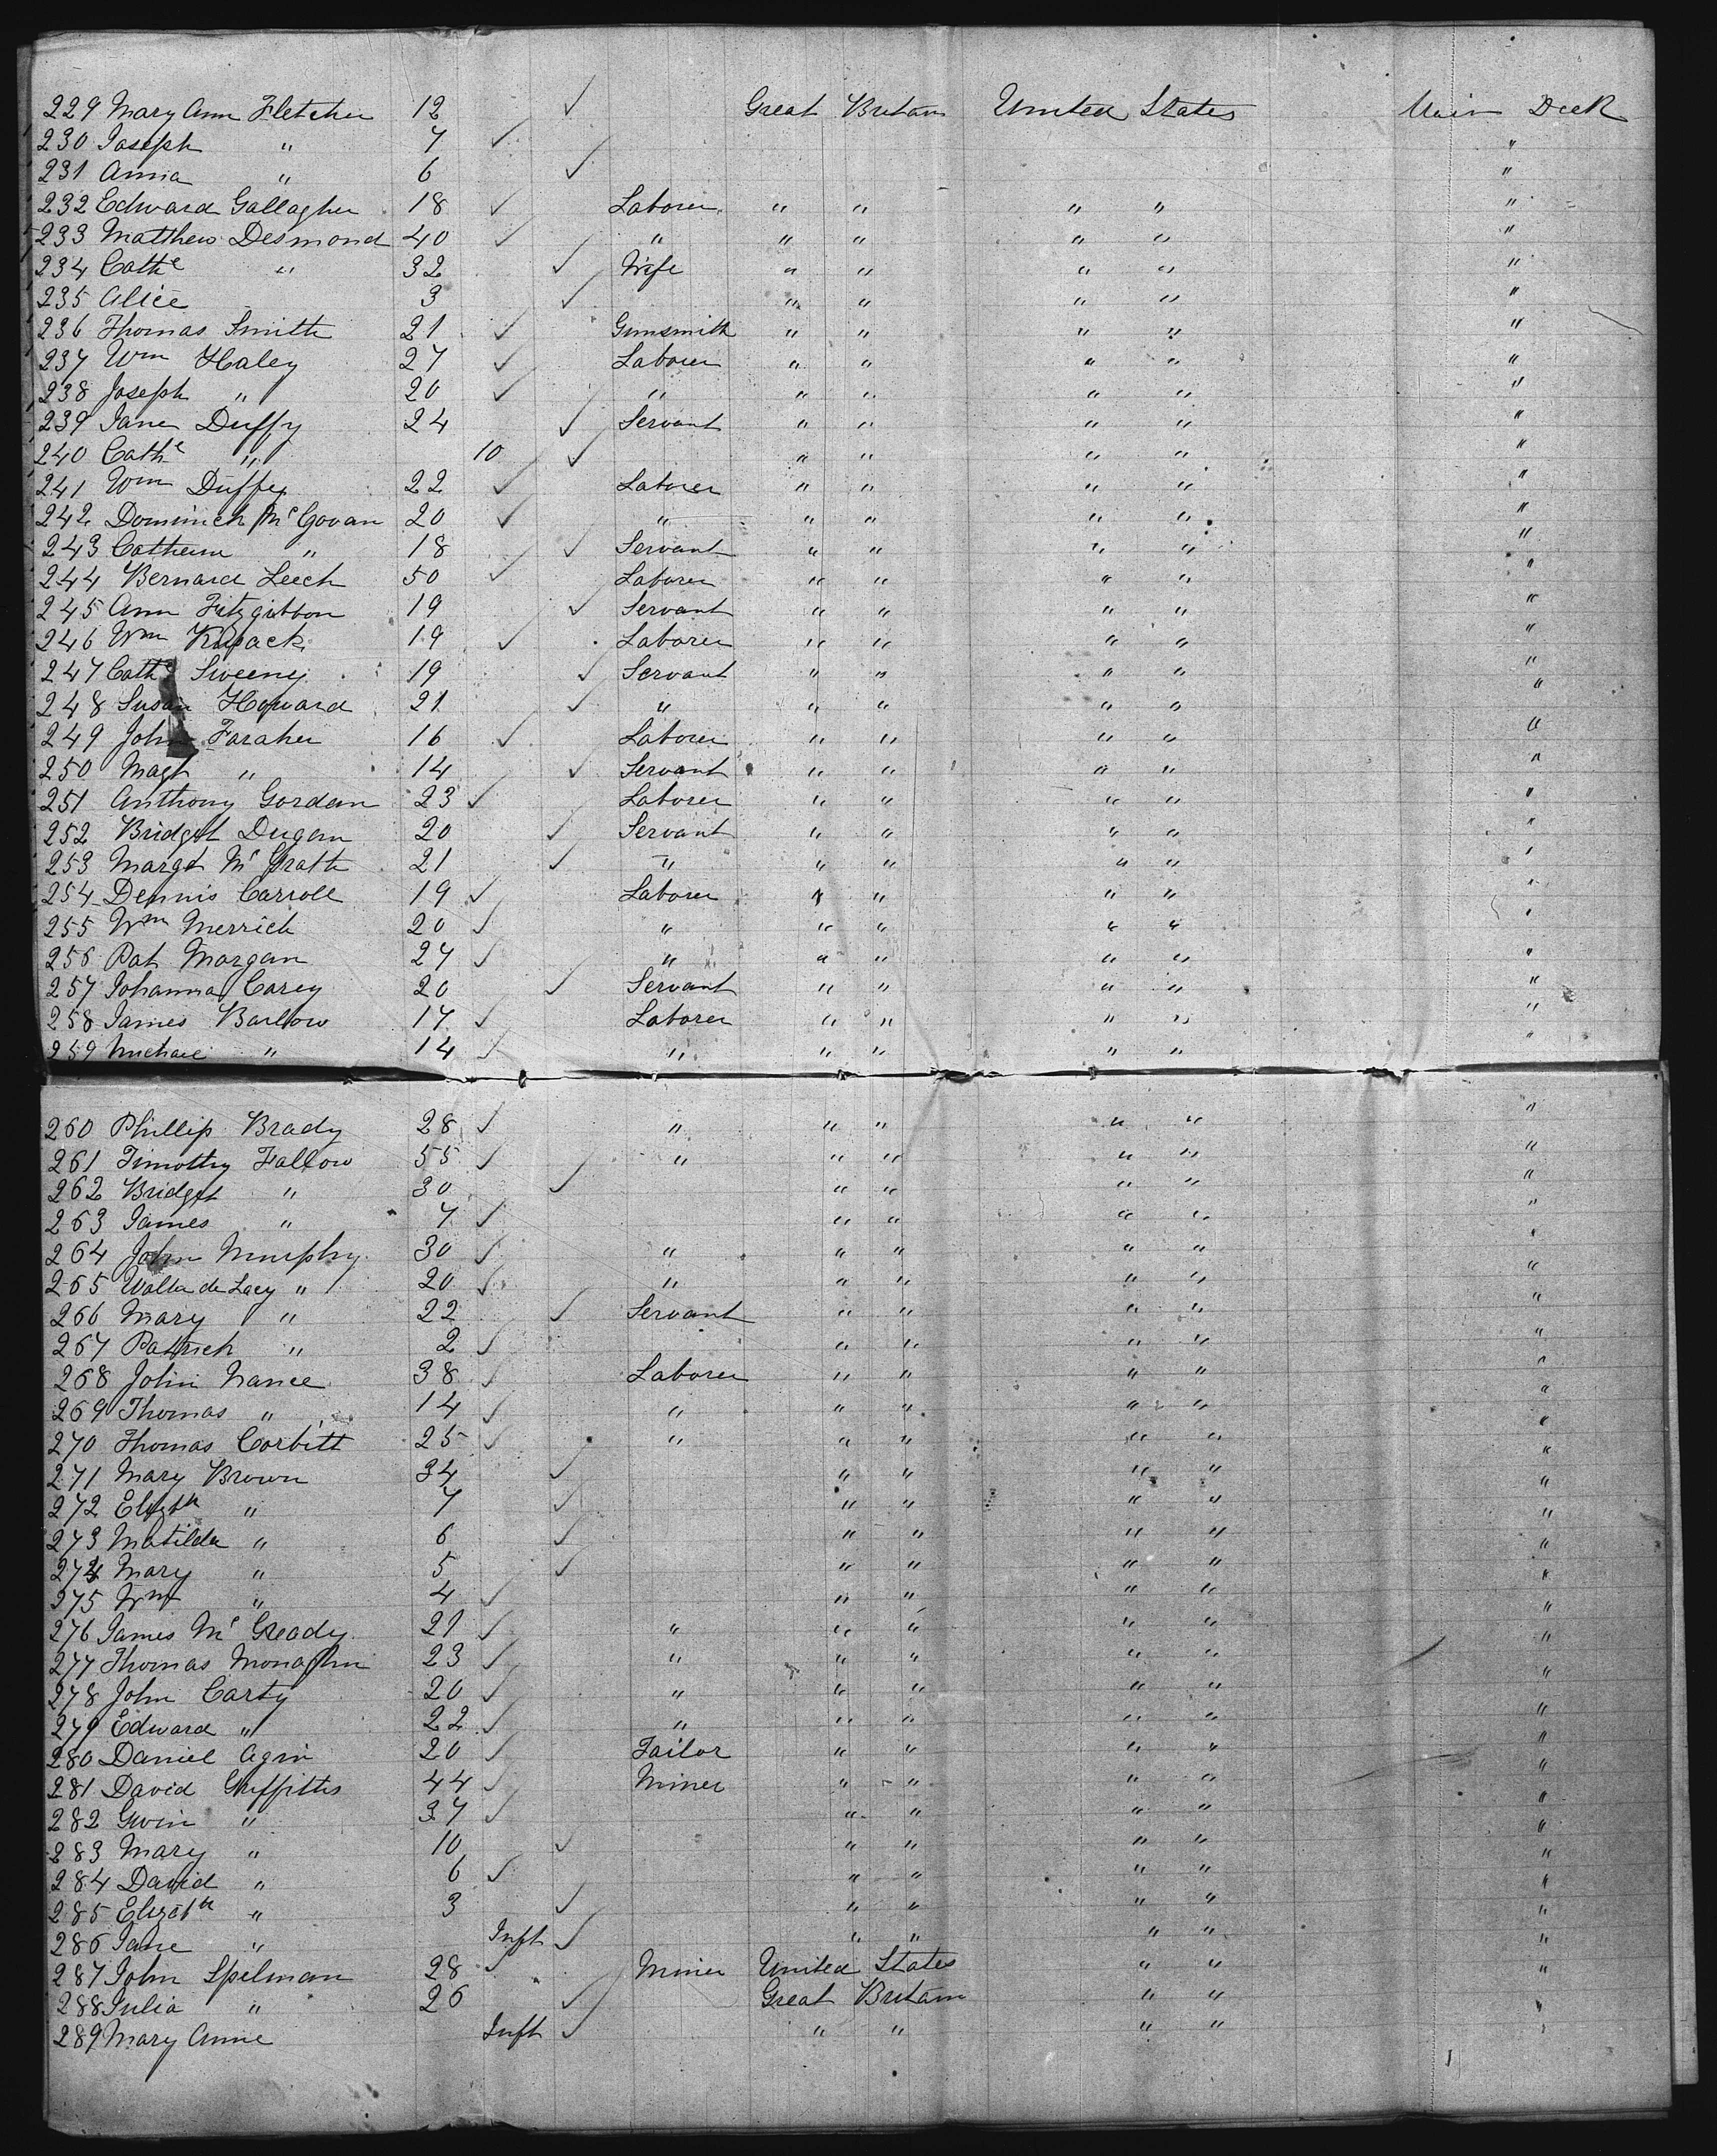 229 Mary Ann Fletcher 12 ✓ Great Britain United States Main Deck
230 Joseph " 7 ✓ "
231 Anna " 6 ✓ "
232 Edward Gallagher 18 ✓ Laborer " " " " "
233 Matthew Desmond 40 ✓ " " " " " "
234 Cathe " 32 ✓ Wife " " " " "
235 Alice 3 ✓ " " " " "
236 Thomas Smith 21 ✓ Gunsmith " " " " "
237 Wm Haley 27 ✓ Laborer " " " " "
238 Joseph " 20 ✓ " " " " " "
239 Jane Duffy 24 ✓ Servant " " " " "
240 Cathe " 10 ✓ " " " " "
241 Wm Duffey 22 ✓ Laborer " " " " "
242 Dominick McGovan 20 ✓ " " " " " "
243 Catherine " 18 ✓ Servant " " " " "
244 Bernard Leech 50 ✓ Laborer " " " " "
245 Ann Fitzgibbon 19 ✓ Servant " " " " "
246 Wm 19 ✓ Laborer " " " " "
247 Cathe Sweeny 19 ✓ Servant " " " " "
248 Susan Howard 21 ✓ " " " " " "
249 John Faraher 16 ✓ Laborer " " " " "
250 Magt " 14 ✓ Servant " " " " "
251 Anthony Gordan 23 ✓ Laborer " " " " "
252 Bridget Dugan 20 ✓ Servant " " " " "
253 Margt McGrath 21 ✓ " " " " " "
254 Dennis Carroll 19 ✓ Laborer " " " " "
255 Wm Merrick 20 ✓ " " " " " "
256 Pat Morgan 27 ✓ " " " " " "
257 Johanna Carey 20 ✓ Servant " " " " "
258 James Barlow 17 ✓ Laborer " " " " "
259 Michael " 14 ✓ " " " " " "
260 Phillip Brady 28 ✓ " " " " " "
261 Timothy Fallow 55 ✓ " " " " " "
262 Bridget " 30 ✓ " " " " "
263 James " 7 ✓ " " " " "
264 John Murphy 30 ✓ " " " " " "
265 Walter de Lacy " 20 ✓ " " " " " "
266 Mary " 22 ✓ Servant " " " " "
267 Patrick " 2 ✓ " " " " "
268 John Nance 38 ✓ Laborer " " " " "
269 Thomas " 14 ✓ " " " " " "
270 Thomas Corbitt 25 ✓ " " " " " "
271 Mary Brown 34 ✓ " " " " "
272 Elizth " 7 ✓ " " " " "
273 Matilda " 6 ✓ " " " " "
274 Mary " 5 ✓ " " " " "
275 Wm " 4 ✓ " " " " "
276 James McGready 21 ✓ " " " " " "
277 Thomas Monaghn 23 ✓ " " " " " "
278 John Carty 20 ✓ " " " " " "
279 Edward " 22 ✓ " " " " " "
280 Daniel Agin 20 ✓ Tailor " " " " "
281 David Griffiths 44 ✓ Miner " " " " "
282 Gwin " 37 ✓ " " " " "
283 Mary " 10 ✓ " " " " "
284 David " 6 ✓ " " " " "
285 Elizabth " 3 ✓ " " " " "
286 Jane " Inft ✓ " " " " "
287 John Spelman 28 ✓ Miner United States " " "
288 Julia " 26 ✓ Great Britain " " "
289 Mary Anne Inft ✓ " " " " "